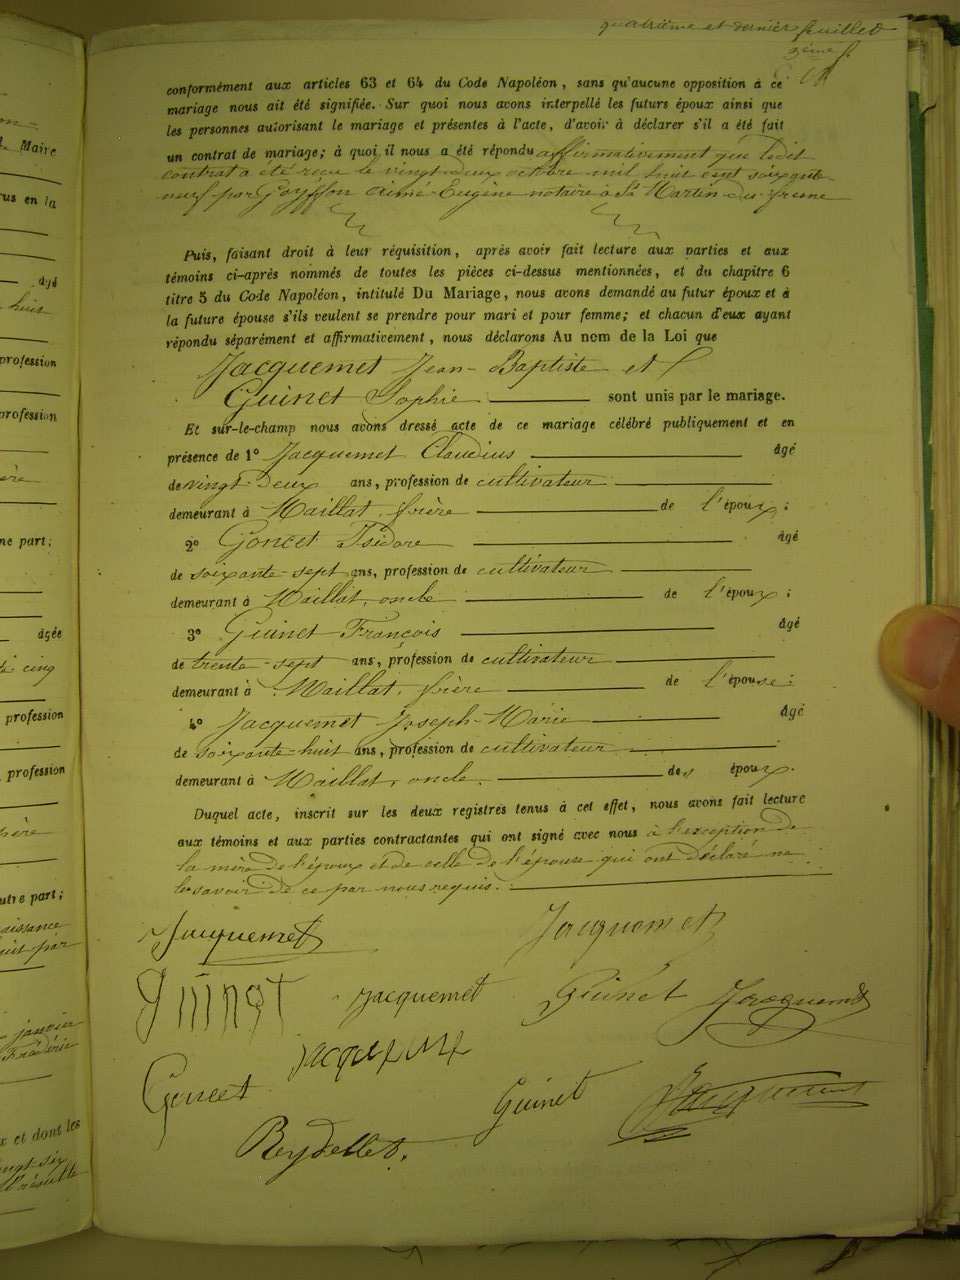 quatrième et dernier feuillet
3ème f.
conformément aux articles 63 et 64 du Code Napoléon, sans qu'aucune opposition à ce
mariage nous ait été signifiée. Sur quoi nous avons interpellé les futurs époux ainsi que
les personnes autorisant le mariage et présentes à l'acte, d'avoir à déclarer s'il a été fait
un contrat de mariage; à quoi il nous a été répondu affirmativement que ledit
contrat a été reçu le vingt deux octobre mil huit cent soixante
neuf par Goyffon Aimé Eugène notaire à St Martin-du-fresne
Puis, faisant droit à leur réquisition, après avoir fait lecture aux parties et aux
témoins ci-après nommés de toutes les pièces ci-dessus mentionnées, et du chapitre 6
titre 5 du Code Napoléon, intitulé Du Mariage, nous avons demandé au futur époux et à
la future épouse s'ils veulent se prendre pour mari et pour femme; et chacun d'eux ayant
répondu séparément et affirmativement, nous déclarons Au nom de la Loi que
Jacquemet Jean-Baptiste et
Guinet Sophie sont unis par le mariage.
Et sur-le-champ nous avons dressé acte de ce mariage célébré publiquement et en
présence de 1° Jacquemet Claudius âgé
de vingt-deux ans, profession de cultivateur
demeurant à Maillat, frère de l'époux;
2° Goncet Isidore âgé
de soixante-sept ans, profession de cultivateur
demeurant à Maillat, oncle de l'époux;
3° Guinet François âgé
de trente-sept ans, profession de cultivateur
demeurant à Maillat, frère de l'épouse;
4° Jacquemet Joseph-Marie âgé
de soixante-huit ans, profession de cultivateur
demeurant à Maillat, oncle des époux.
Duquel acte, inscrit sur les deux registres tenus à cet effet, nous avons fait lecture
aux témoins et aux parties contractantes qui ont signé avec nous à l'exception de
la mère de l'époux et de celle de l'épouse qui ont déclaré ne
le savoir de ce par nous requis.
Jacquemet Jacquemet
Guinet Jacquemet Guinet Jacquemet
Jacquemet
Goncet Guinet Jacquemet
Reydellet.
Maire
us en la
âgé
huit
profession
profession
ne part;
âgée
cinq
profession
profession
utre part;
naissance
par
janvier
Frédéric
x et dont les
vingt-six